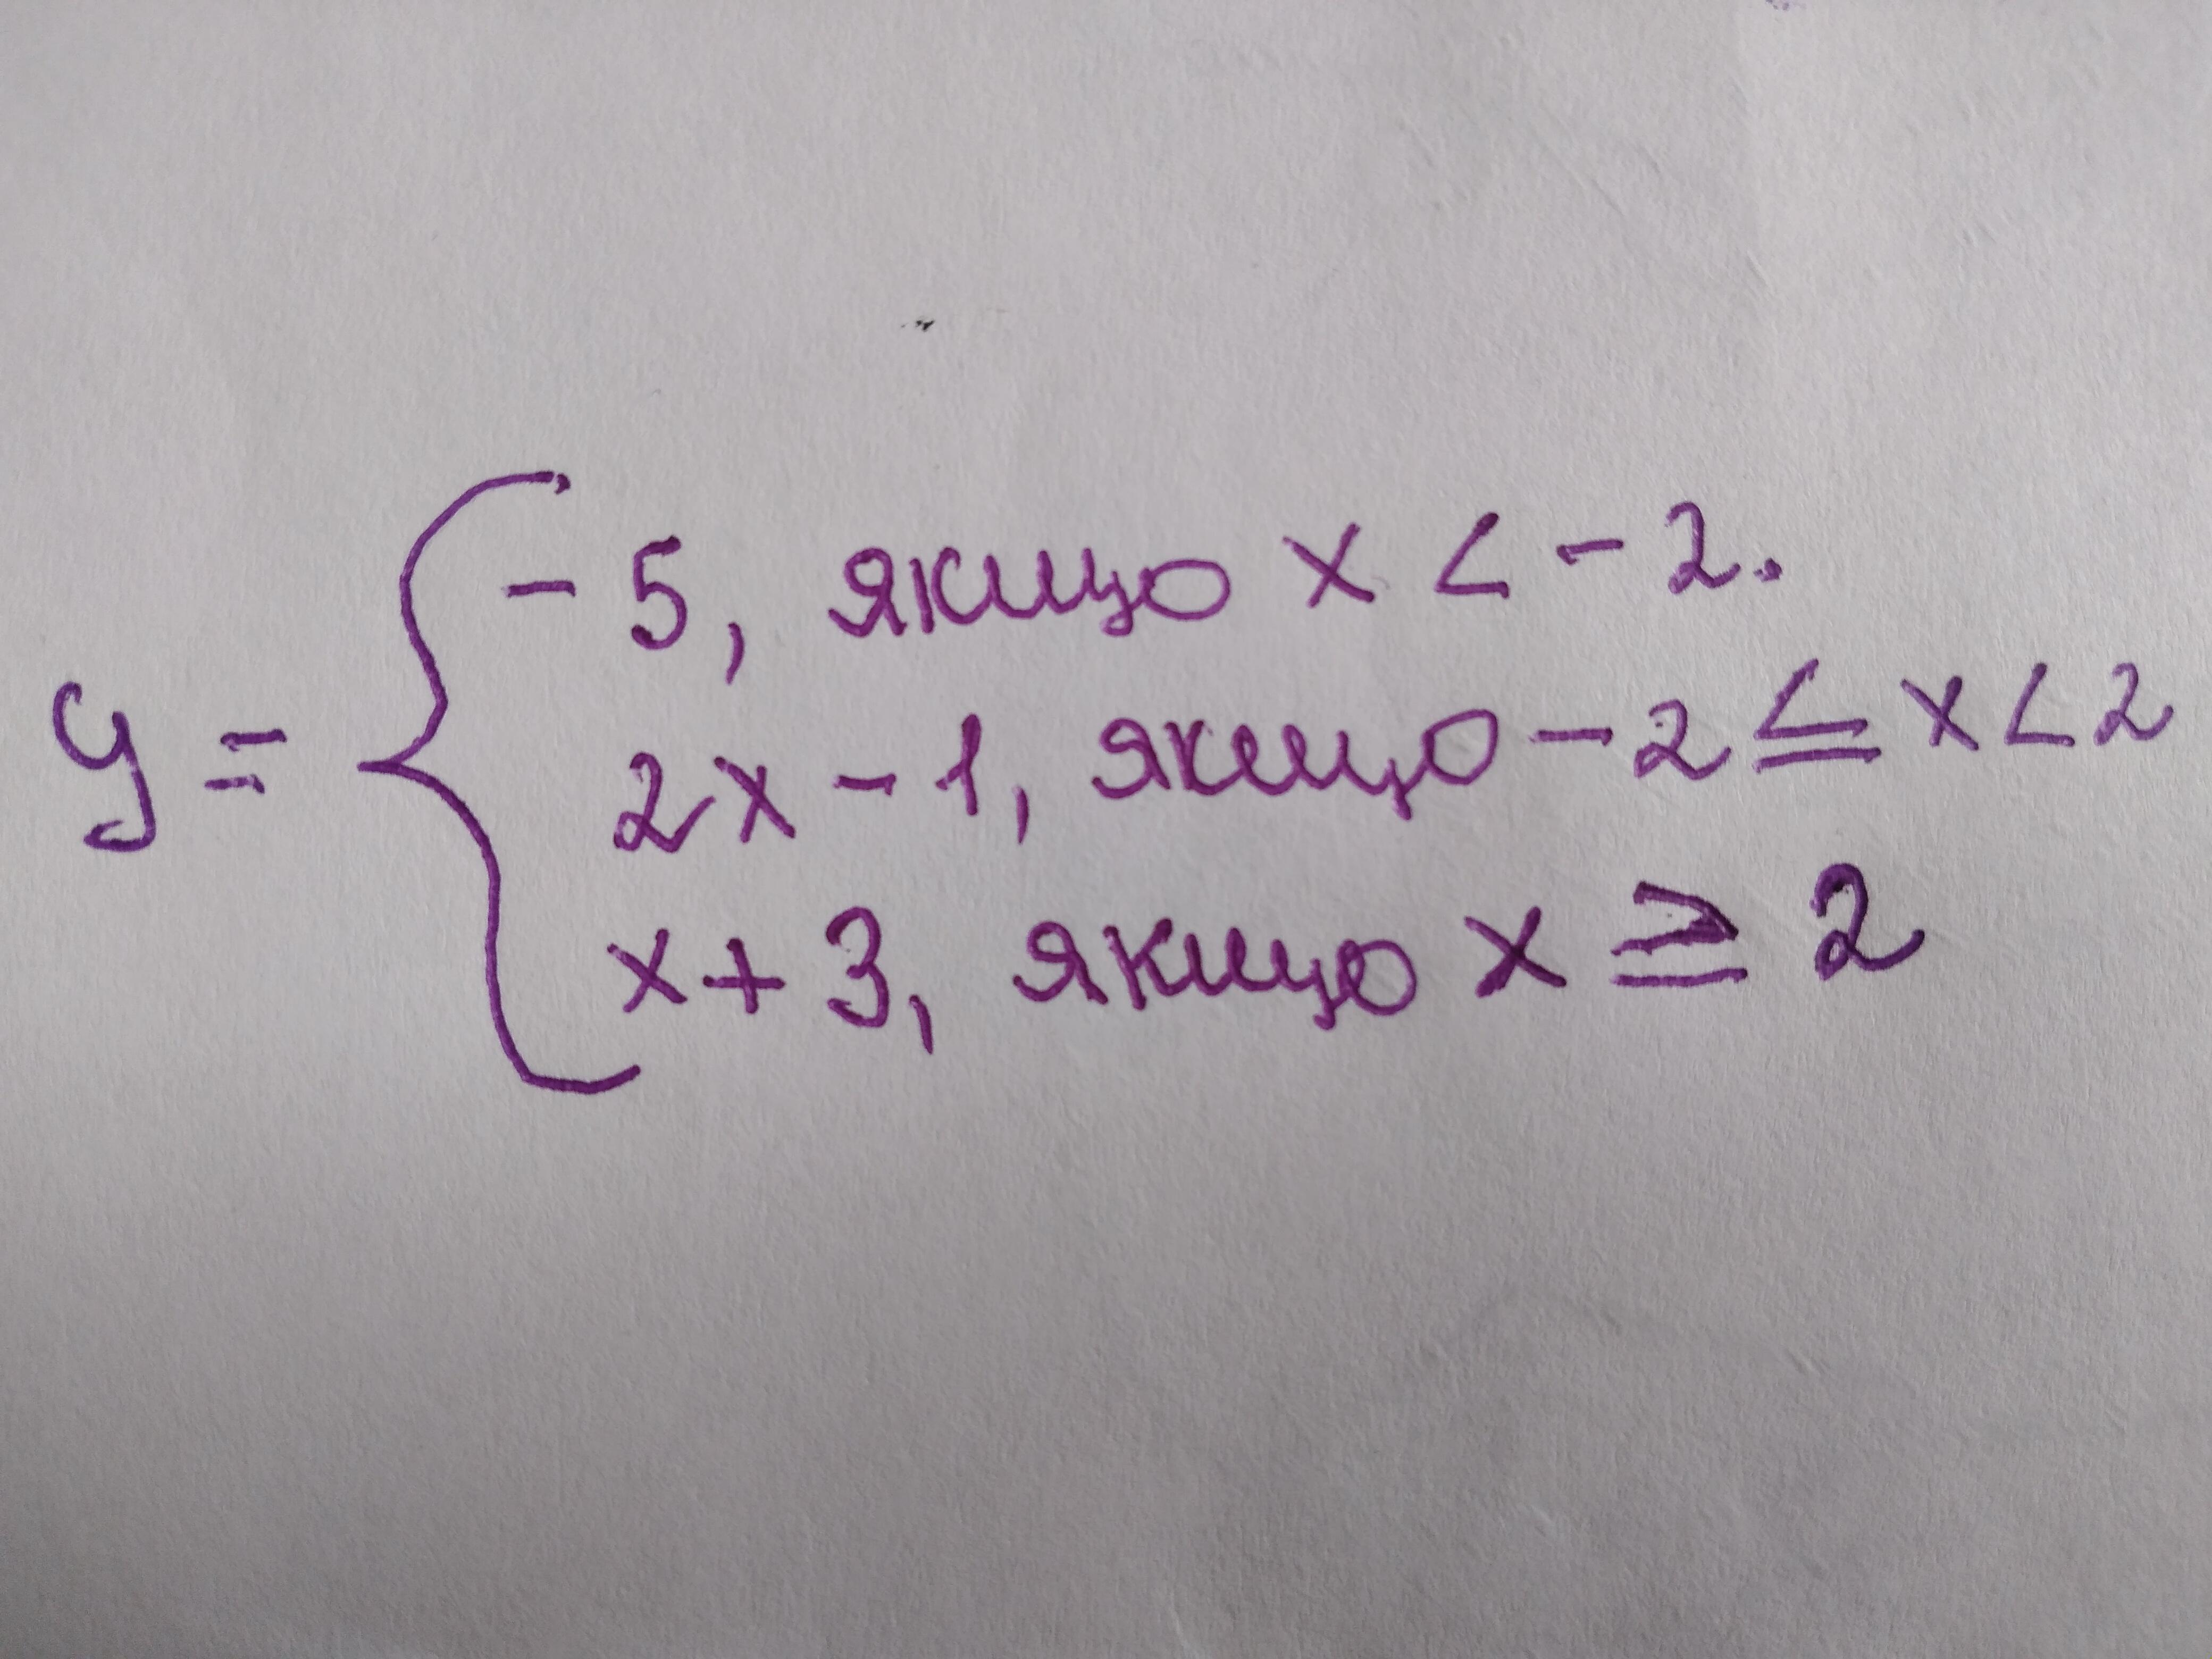 y = { - 5, якщо x < - 2.
2x - 1, якщо - 2 ≤ x < 2
x + 3, якщо x ≥ 2